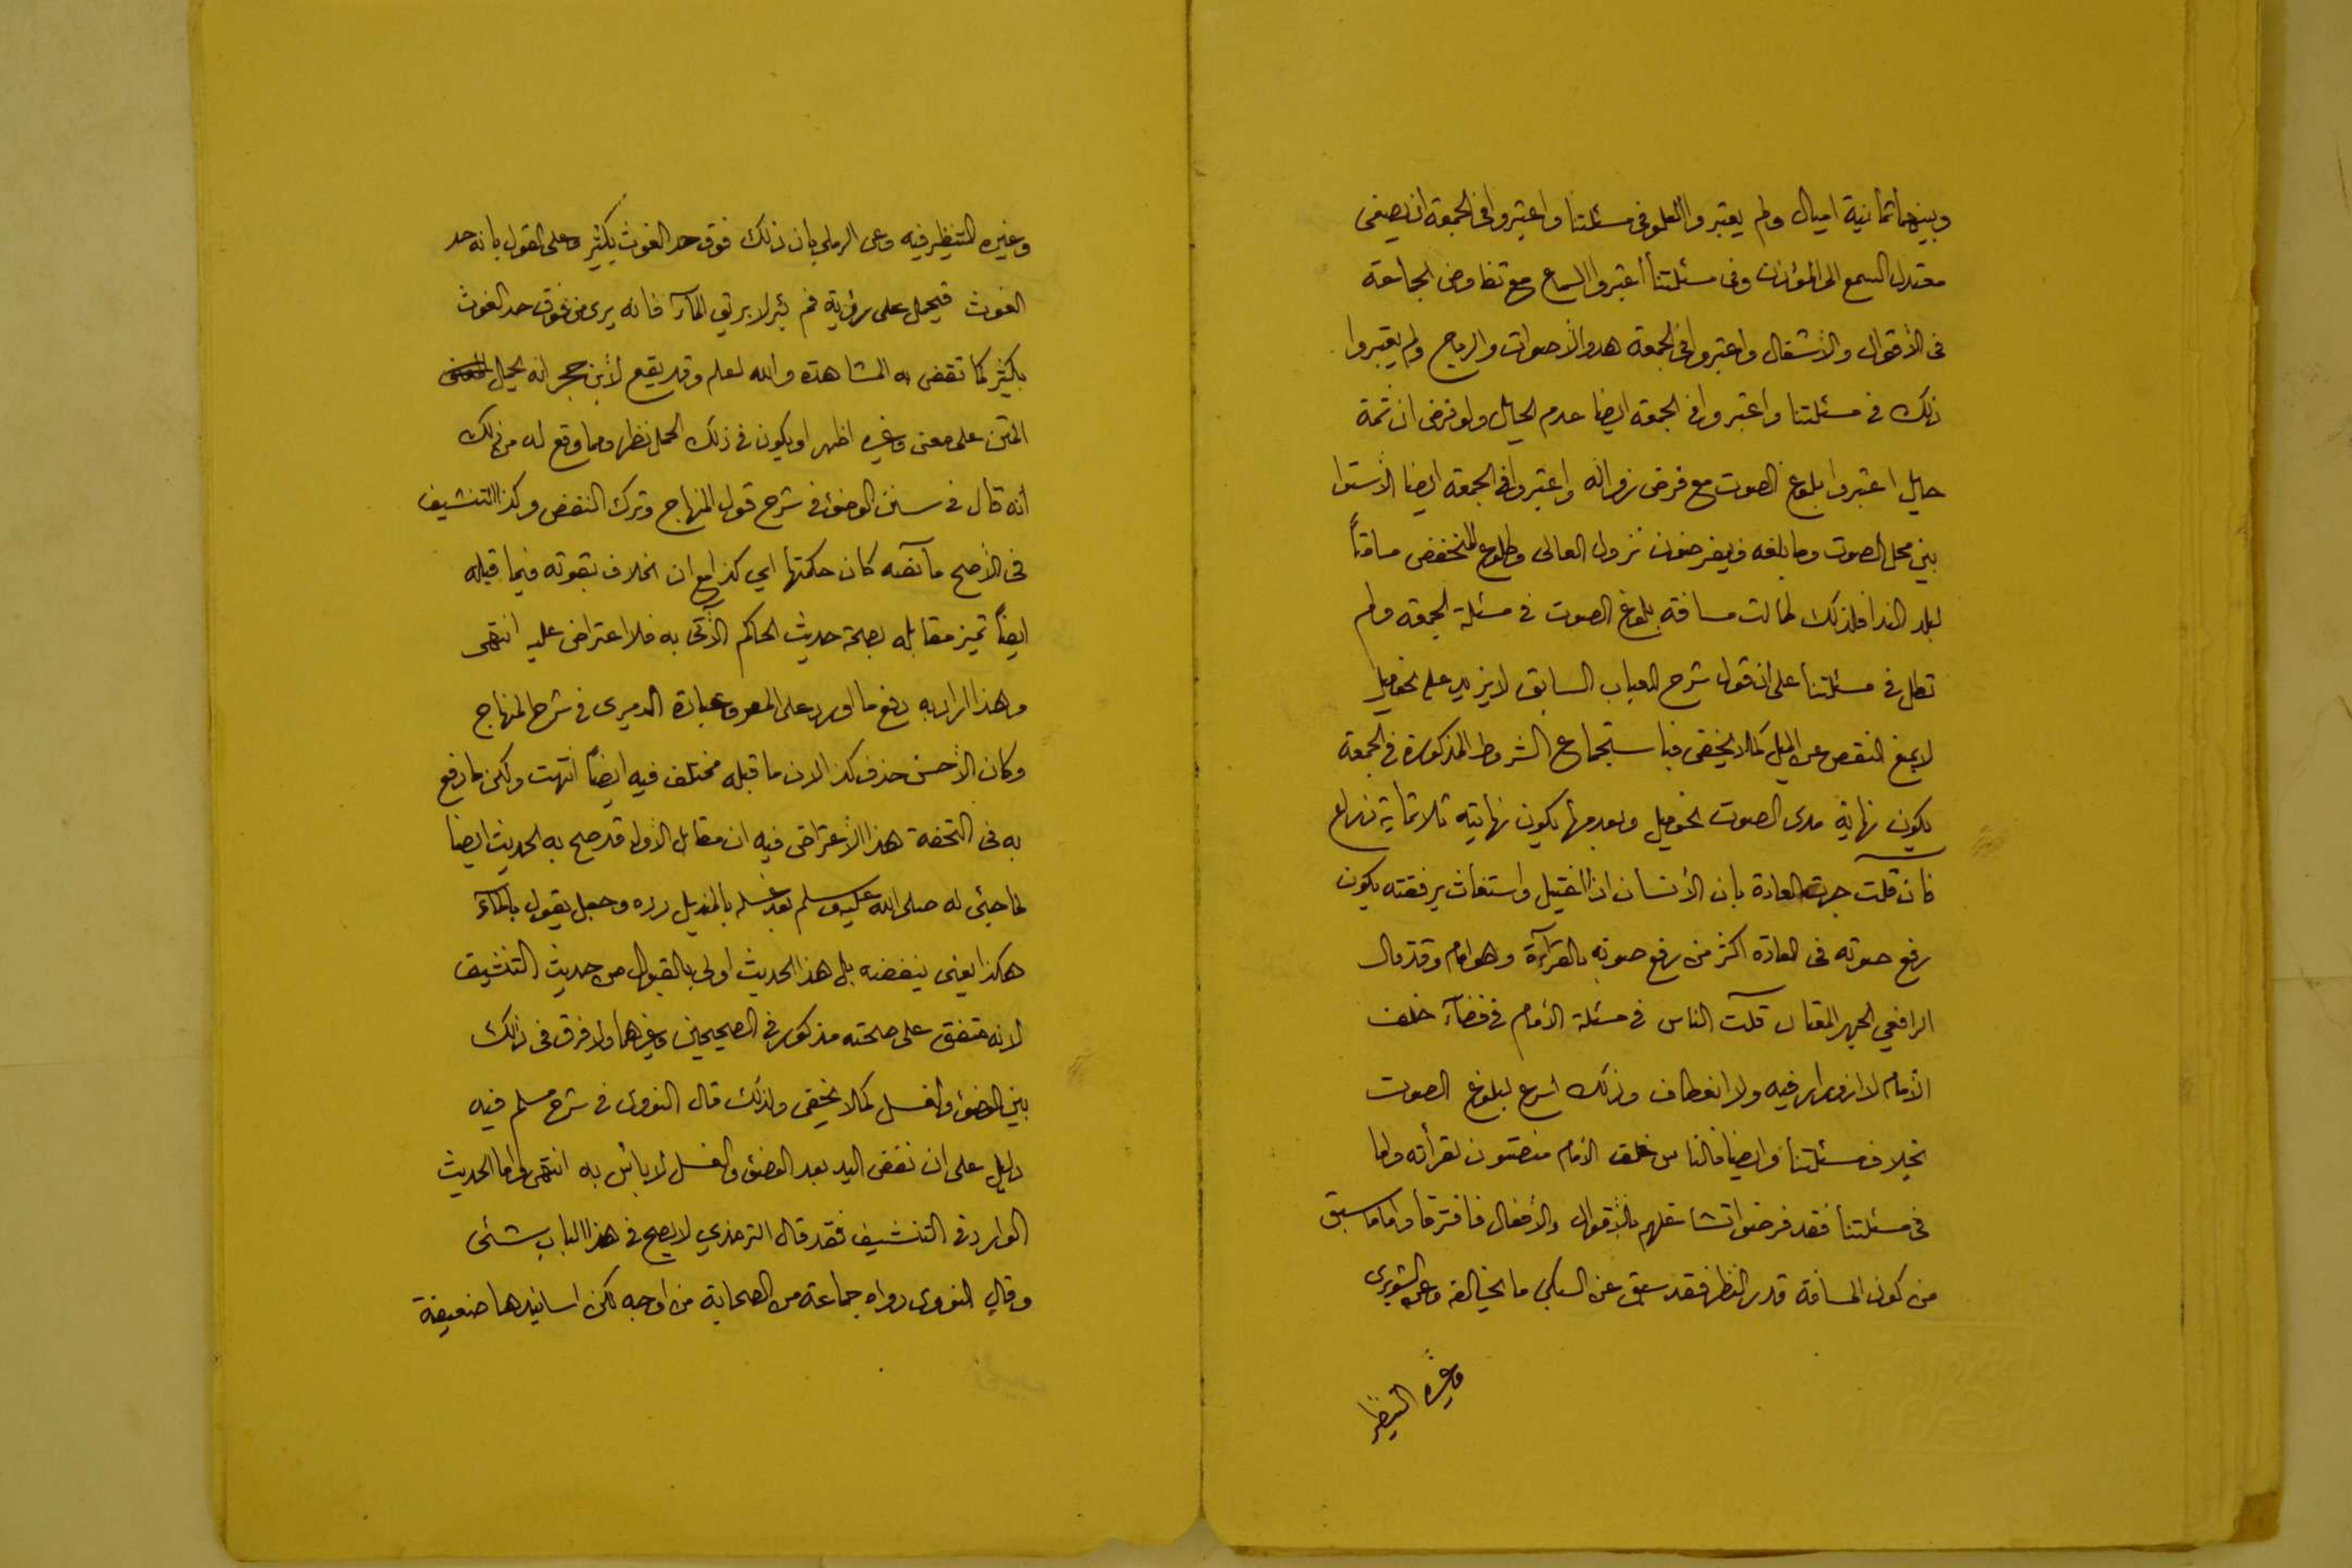 وبينهما ثمانية اميال ولم يعتبروا العلو في مسئلتنا واعتبروا في الجمعة ان يصغى
معتدل السمع الى المؤذن وفي مسئلتنا اعتبروا السماع مع تفاوض الجماعة
في الأقوال والاشغال واعتبروا في الجمعة هدو الأصوات والرياح ولم يعتبروا
ذلك في مسئلتنا واعتبروا في الجمعة ايضا عدم الحايل ولو فرض ان ثمة
حايل اعتبروا بلوغ الصوت مع فرض زواله واعتبروا في الجمعة ايضا الاستوا
بين محل الصوت وما بلغه فيفرضون نزول العالى وطلوع المنخفض مسافةً
لبلد الندا فلذلك طالت مسافة بلوغ الصوت في مسئلة الجمعة ولم
تطل في مسئلتنا على ان قول شرح العباب السابق لا يزيد على نحو ميل
لا يمنع النقص عن الميل كما لا يخفى فباستجماع الشروط المذكورة في الجمعة
يكون نهاية مدى الصوت نحو ميل وبعدمها يكون نهايته ثلاثماية ذراع
فان قلت جرت العادة بان الأنسان اذا اغتيل واستغاث برفقته يكون
رفع صوته في العادة اكثر من رفع صوته بالقرآءة وهو امام وقد قال
الرافعي الجهر المقتال قلت الناس في مسئلة الأمام في فضآء خلف
الأمام لا ازورار فيه ولا انعطاف وذلك اسرع لبلوغ الصوت
بخلاف مسئلتنا وايضا فالناس خلف الامام منصتون لقرأته واما
في مسئلتنا فقد فرضوا تشاغلهم بالأقوال والأفعال فافترقا واما ما سبق
من كون المسافة قدر النظر فقد سبق عن السبكي ما يخالفه وعن الشوبري
وغيره التنظير
وغيره التنظير فيه وعن الرملي بان ذلك فوق حد الغوث بكثير وعلى القول بانه حد
الغوث فيحمل على رؤية فم بئر لا بريق المآء فانه يرى من فوق حد الغوث
بكثير كما تقضى به المشاهدة والله اعلم وقد يقع لأبن حجر انه يحيل
المتن على معنى وغيره اظهر او يكون في ذلك الحمل نظر ومما وقع له من ذلك
انه قال في سنن الوضوء في شرح قول المنهاج وترك النفض وكذا التنشيف
في الأصح ما نصه كان حكمتها اي كذا مع ان الخلاف بقوته فيما قبله
ايضاً تميز مقابله بصحة حديث الحاكم الآتى به فلا اعتراض عليه انتهى
وهذا اراد به دفع ما اورد على المص وعبارة الدميرى في شرح المنهاج
وكان الأحسن حذف كذا لان ما قبله مختلف فيه ايضاً انتهت ولكن ما دفع
به في التحفة هذا الأعتراض فيه ان مقابل الأول قد صح به الحديث ايضا
لما جئ له صلى الله عليه وسلم بعد غسله بالمنديل رده وجعل يقول بالمآء
هكذا يعنى ينفضه بل هذا الحديث اولى بالقبول من حديث التنشيف
لانه متفق على صحته مذكور في الصحيحين وغيرهما ولا فرق في ذلك
بين الوضوء والغسل كما لا يخفى ولذلك قال النووى في شرح مسلم فيه
دليل على ان نفض اليد بعد الوضوء والغسل لا بائس به انتهى واما الحديث
الوارد في التنشيف فقد قال الترمذي لا يصح في هذا الباب شئى
وقال النووى رواه جماعة من الصحابة من اوجه لكن اسانيدها ضعيفة